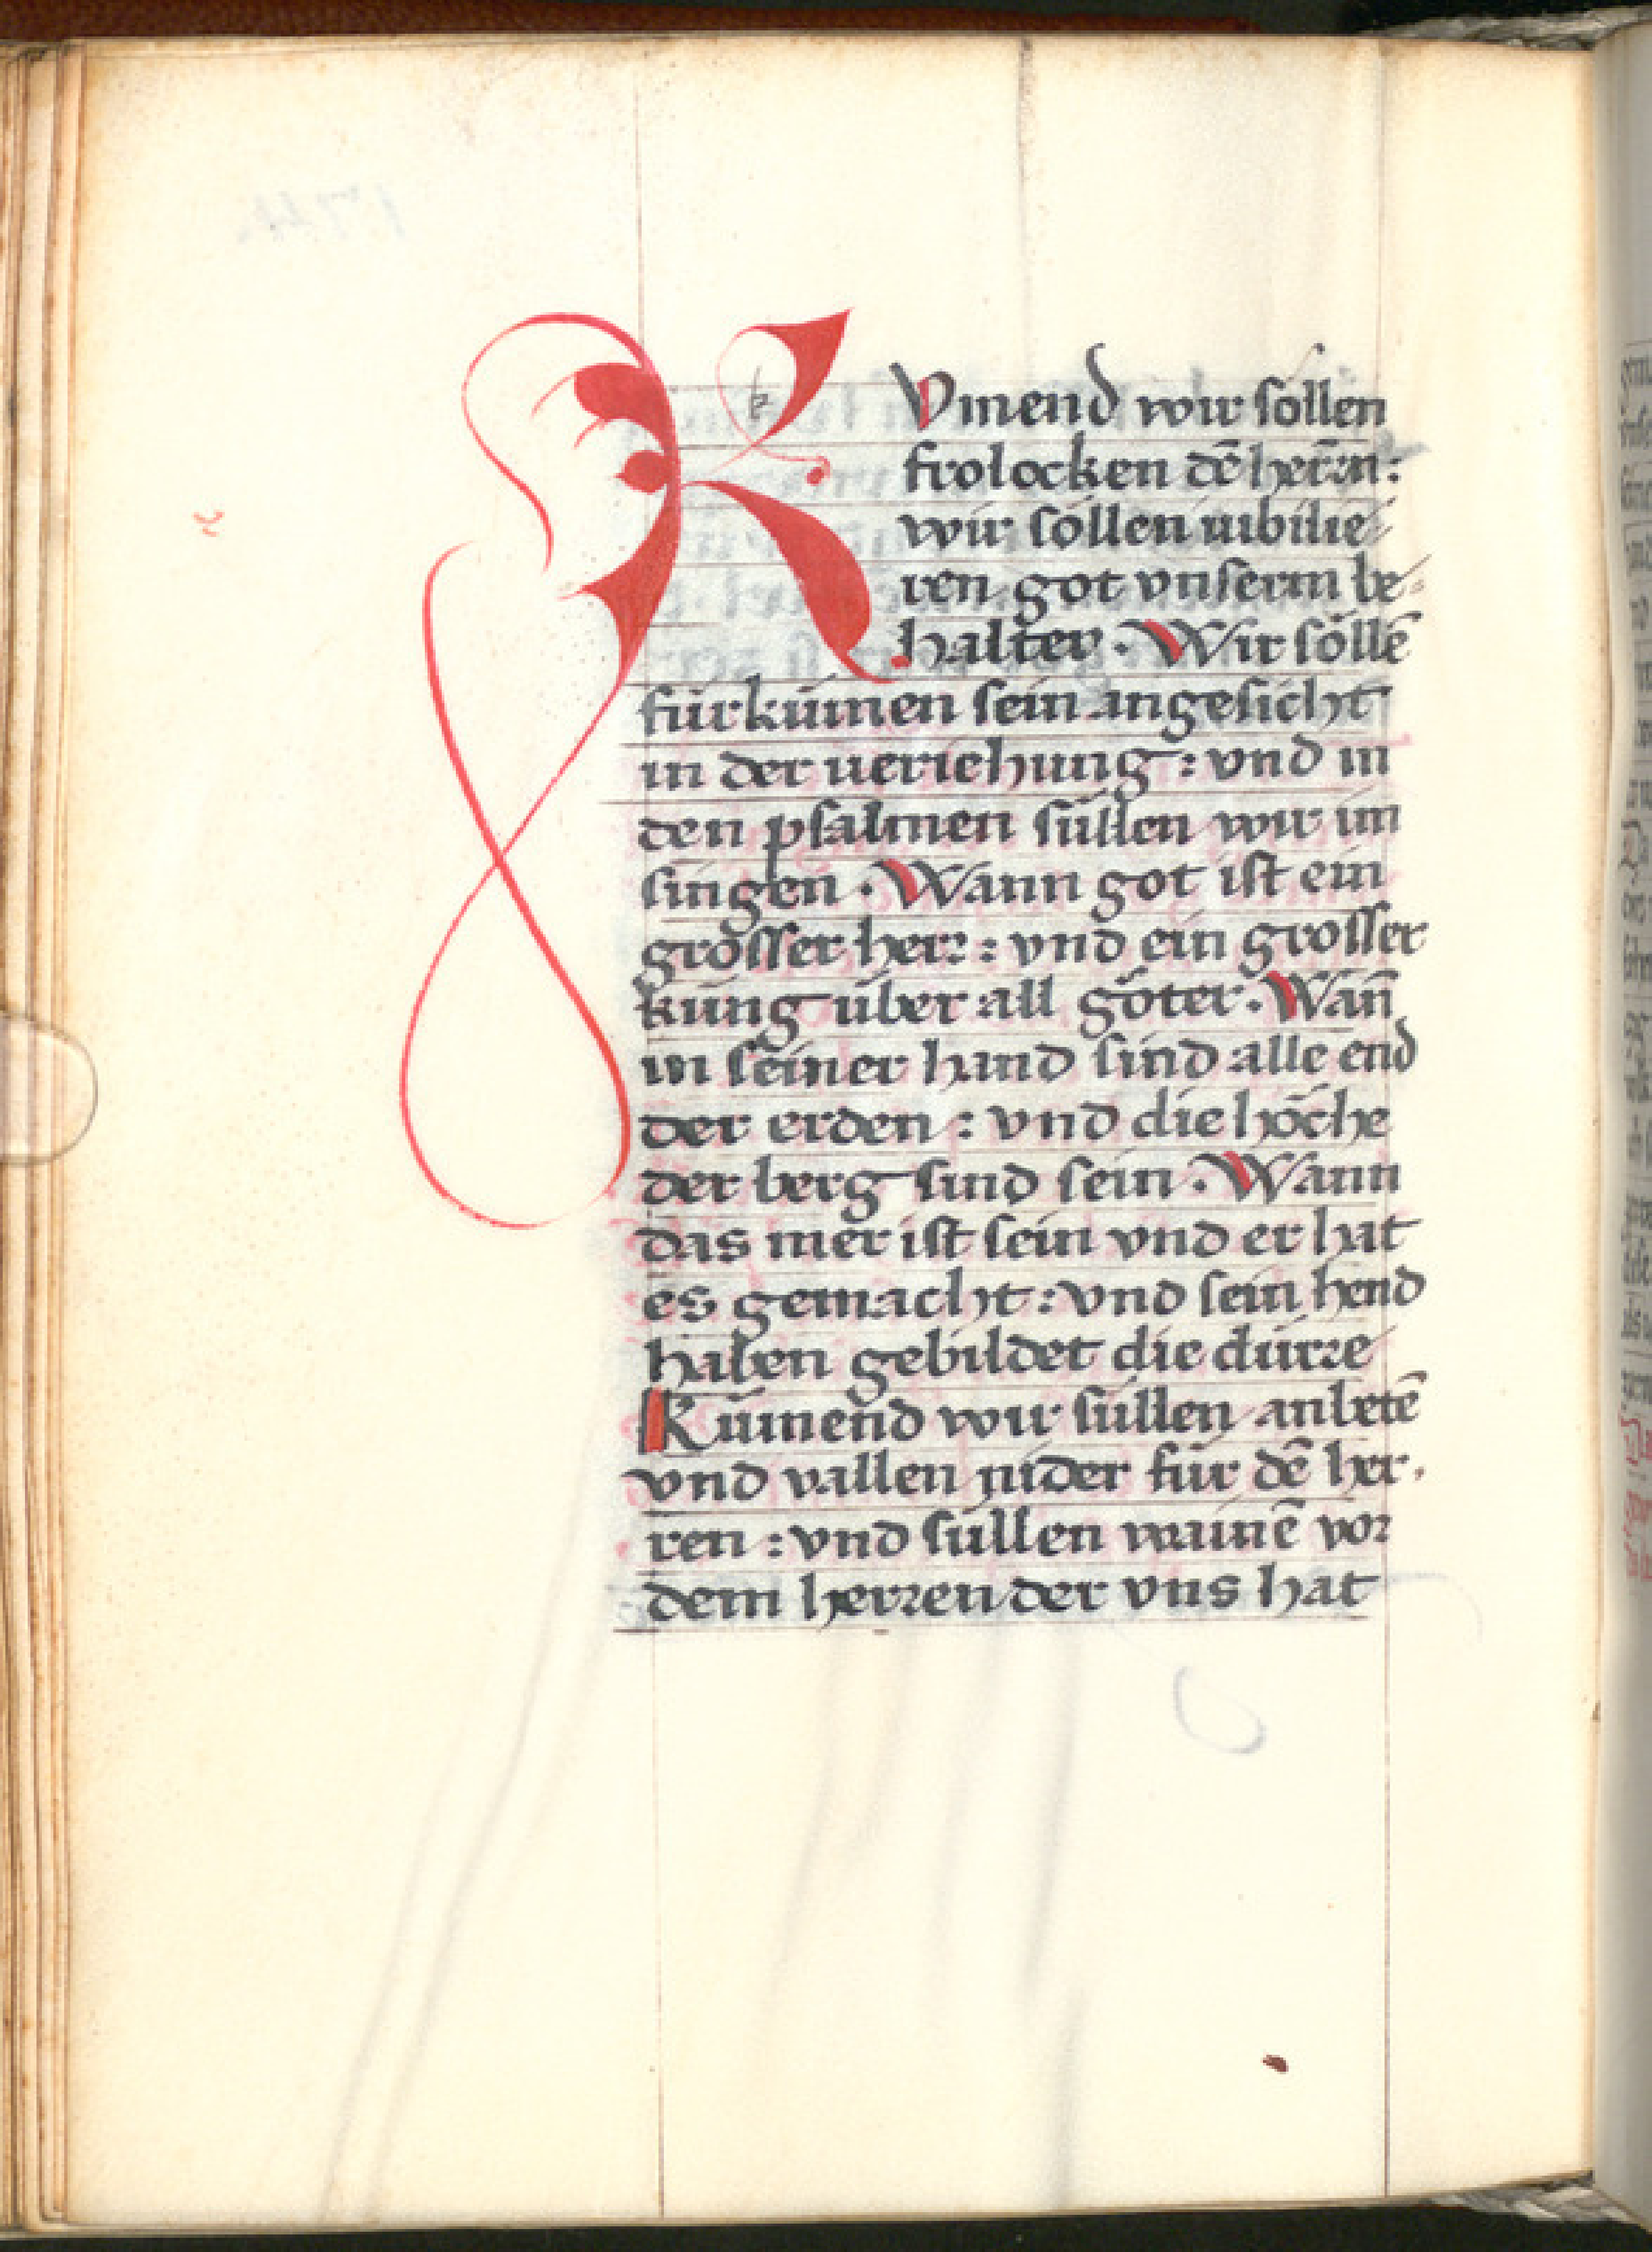 KVmend wir söllen
frolocken dē herrn:
wir söllen iubilie
ren got vnserm be-
halter. Wir söllē
fürkūmen sein angesicht
in der veriehung: vnd in
den psalmen süllen wir im
singen. Wann got ist ein
grosser herr: vnd ein grosser
küng über all göter. Wañ
in seiner hand sind alle end
der erden: vnd die höche
der berg sind sein. Wann
das mer ist sein vnd er hat
es gemacht: vnd sein hend
haben gebildet die dürre
Kūmend wir süllen anbetē
vnd vallen nider für dē her-
ren: vnd süllen wainē vor
dem herren der vns hat